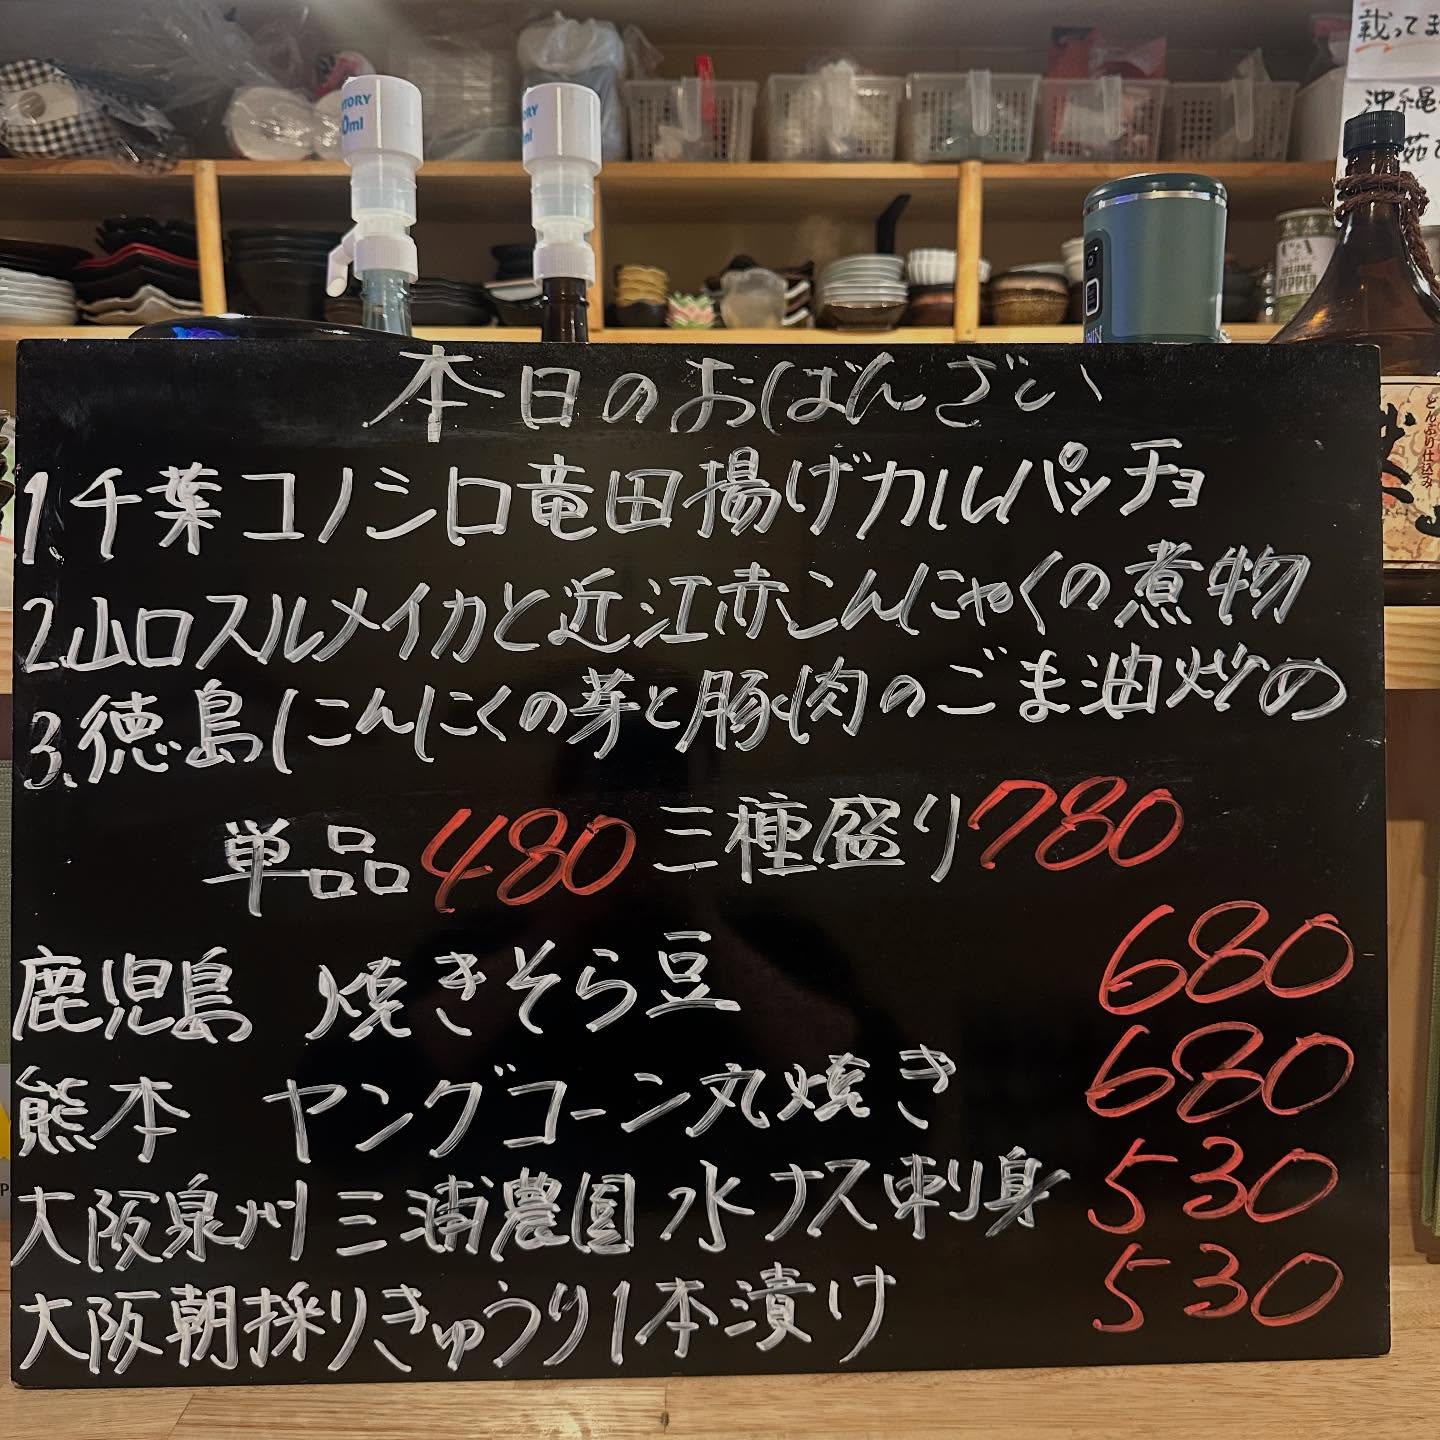 載ってま
沖縄
茹で
TORY
0ml
TORY
ml
PEPPER
どんぶり仕込み
本日のおばんざい
1.千葉コノシロ竜田揚げカルパッチョ
2.山口スルメイカと近江赤こんにゃくの煮物
3.徳島にんにくの芽と豚肉のごま油炒め
単品480 三種盛り780
鹿児島 焼きそら豆 680
熊本 ヤングコーン丸焼き 680
大阪泉州 三浦農園 水ナス刺身 530
大阪朝採りきゅうり1本漬け 530